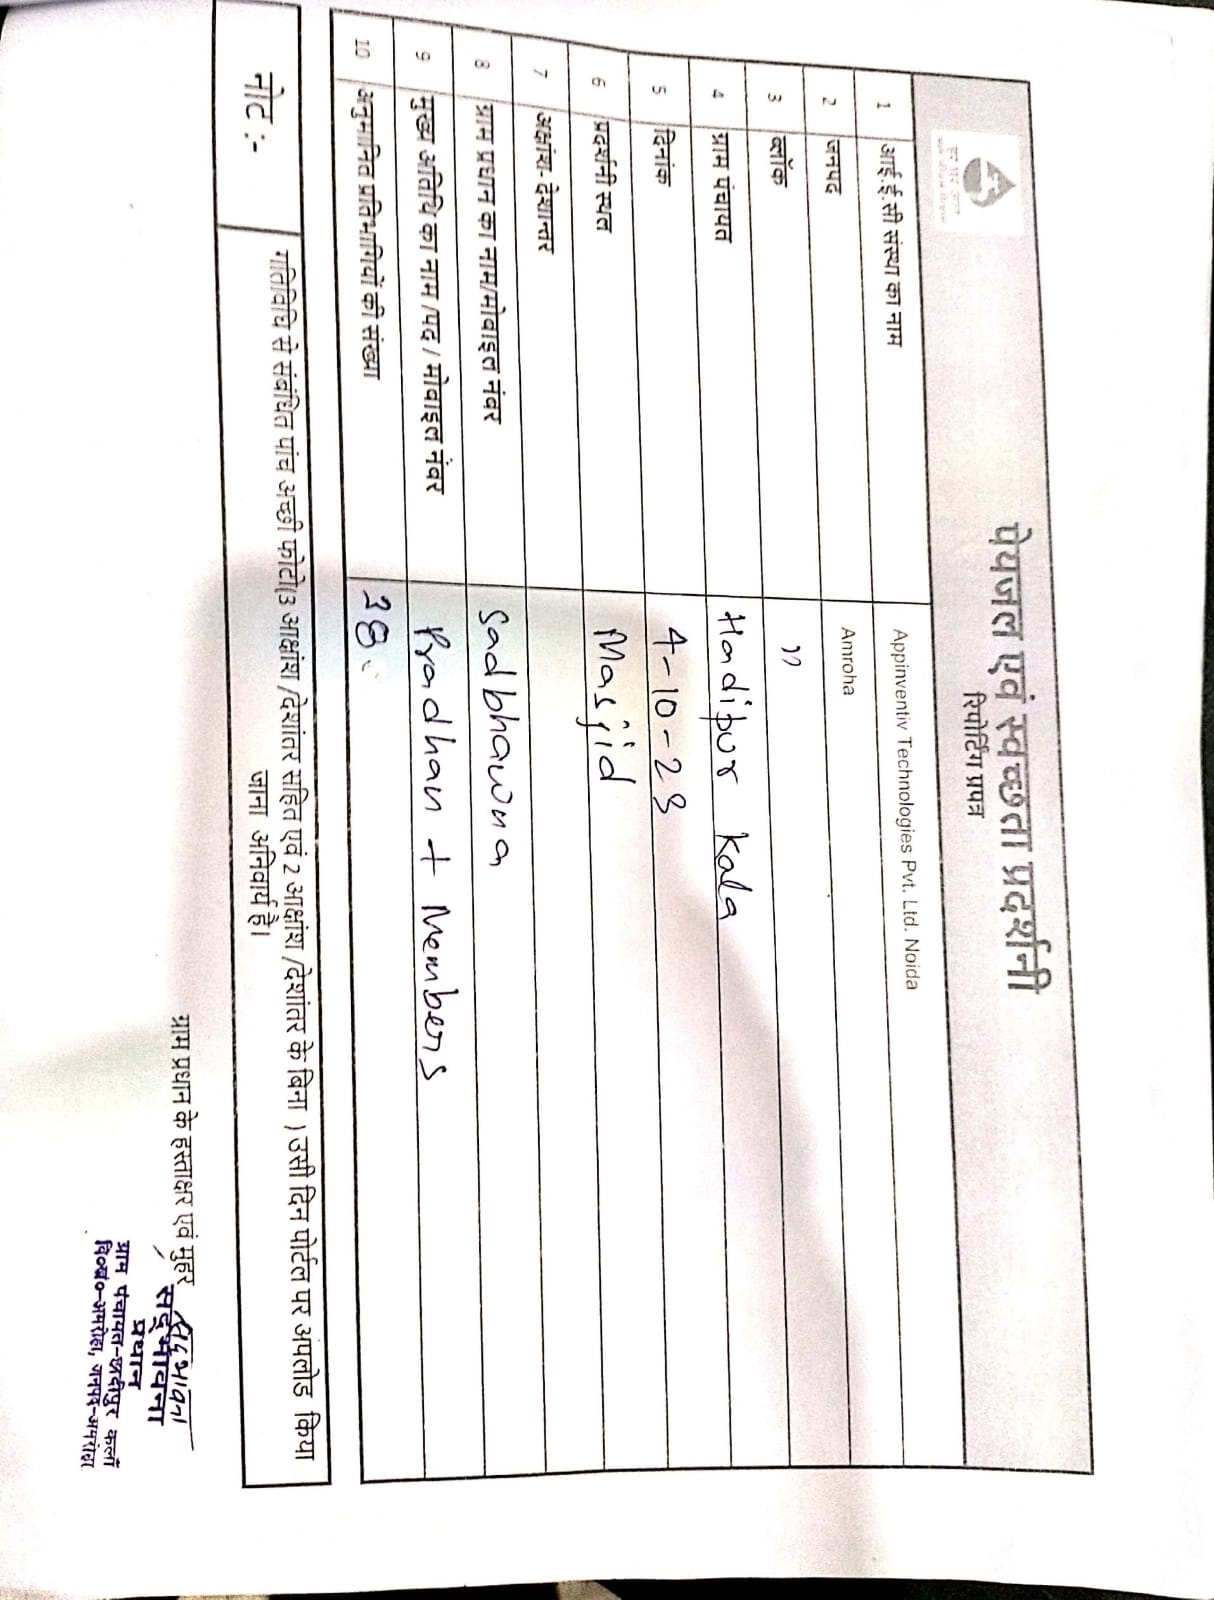 पेयजल एवं स्वच्छता प्रदर्शनी
रिपोर्टिंग प्रपत्र
1 आई.ई.सी संस्था का नाम Appinventiv Technologies Pvt. Ltd. Noida
2 जनपद Amroha
3 ब्लॉक "
4 ग्राम पंचायत Hadipur Kala
5 दिनांक 4-10-23
6 प्रदर्शनी स्थल Masjid
7 अक्षांश-देशान्तर
8 ग्राम प्रधान का नाम/मोबाइल नंबर Sadbhawna
9 मुख्य अतिथि का नाम /पद / मोबाइल नंबर Pradhan + Members
10 अनुमानित प्रतिभागियों की संख्या 38
नोट :- गतिविधि से संबंधित पांच अच्छी फोटो(3 आक्षांश /देशांतर सहित एवं 2 आक्षांश /देशांतर के बिना ) उसी दिन पोर्टल पर अपलोड किया
जाना अनिवार्य है।
ग्राम प्रधान के हस्ताक्षर एवं मुहर
सदभावना
सद्भावना
प्रधान
ग्राम पंचायत-हादीपुर कलाँ
वि०ख०-अमरोहा, जनपद-अमरोहा